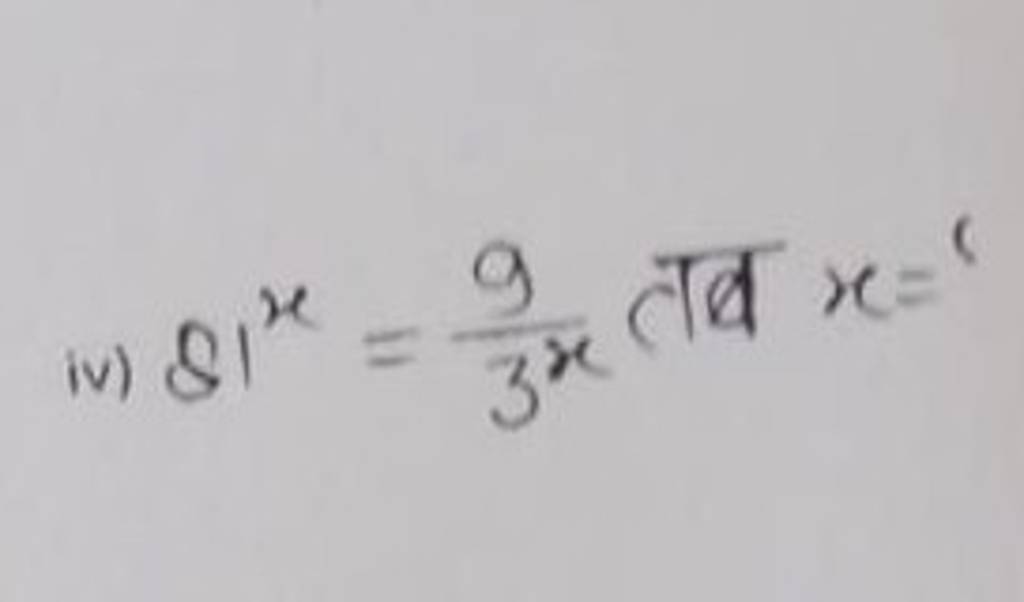 iv) 81^x = 9/3^x तब x =